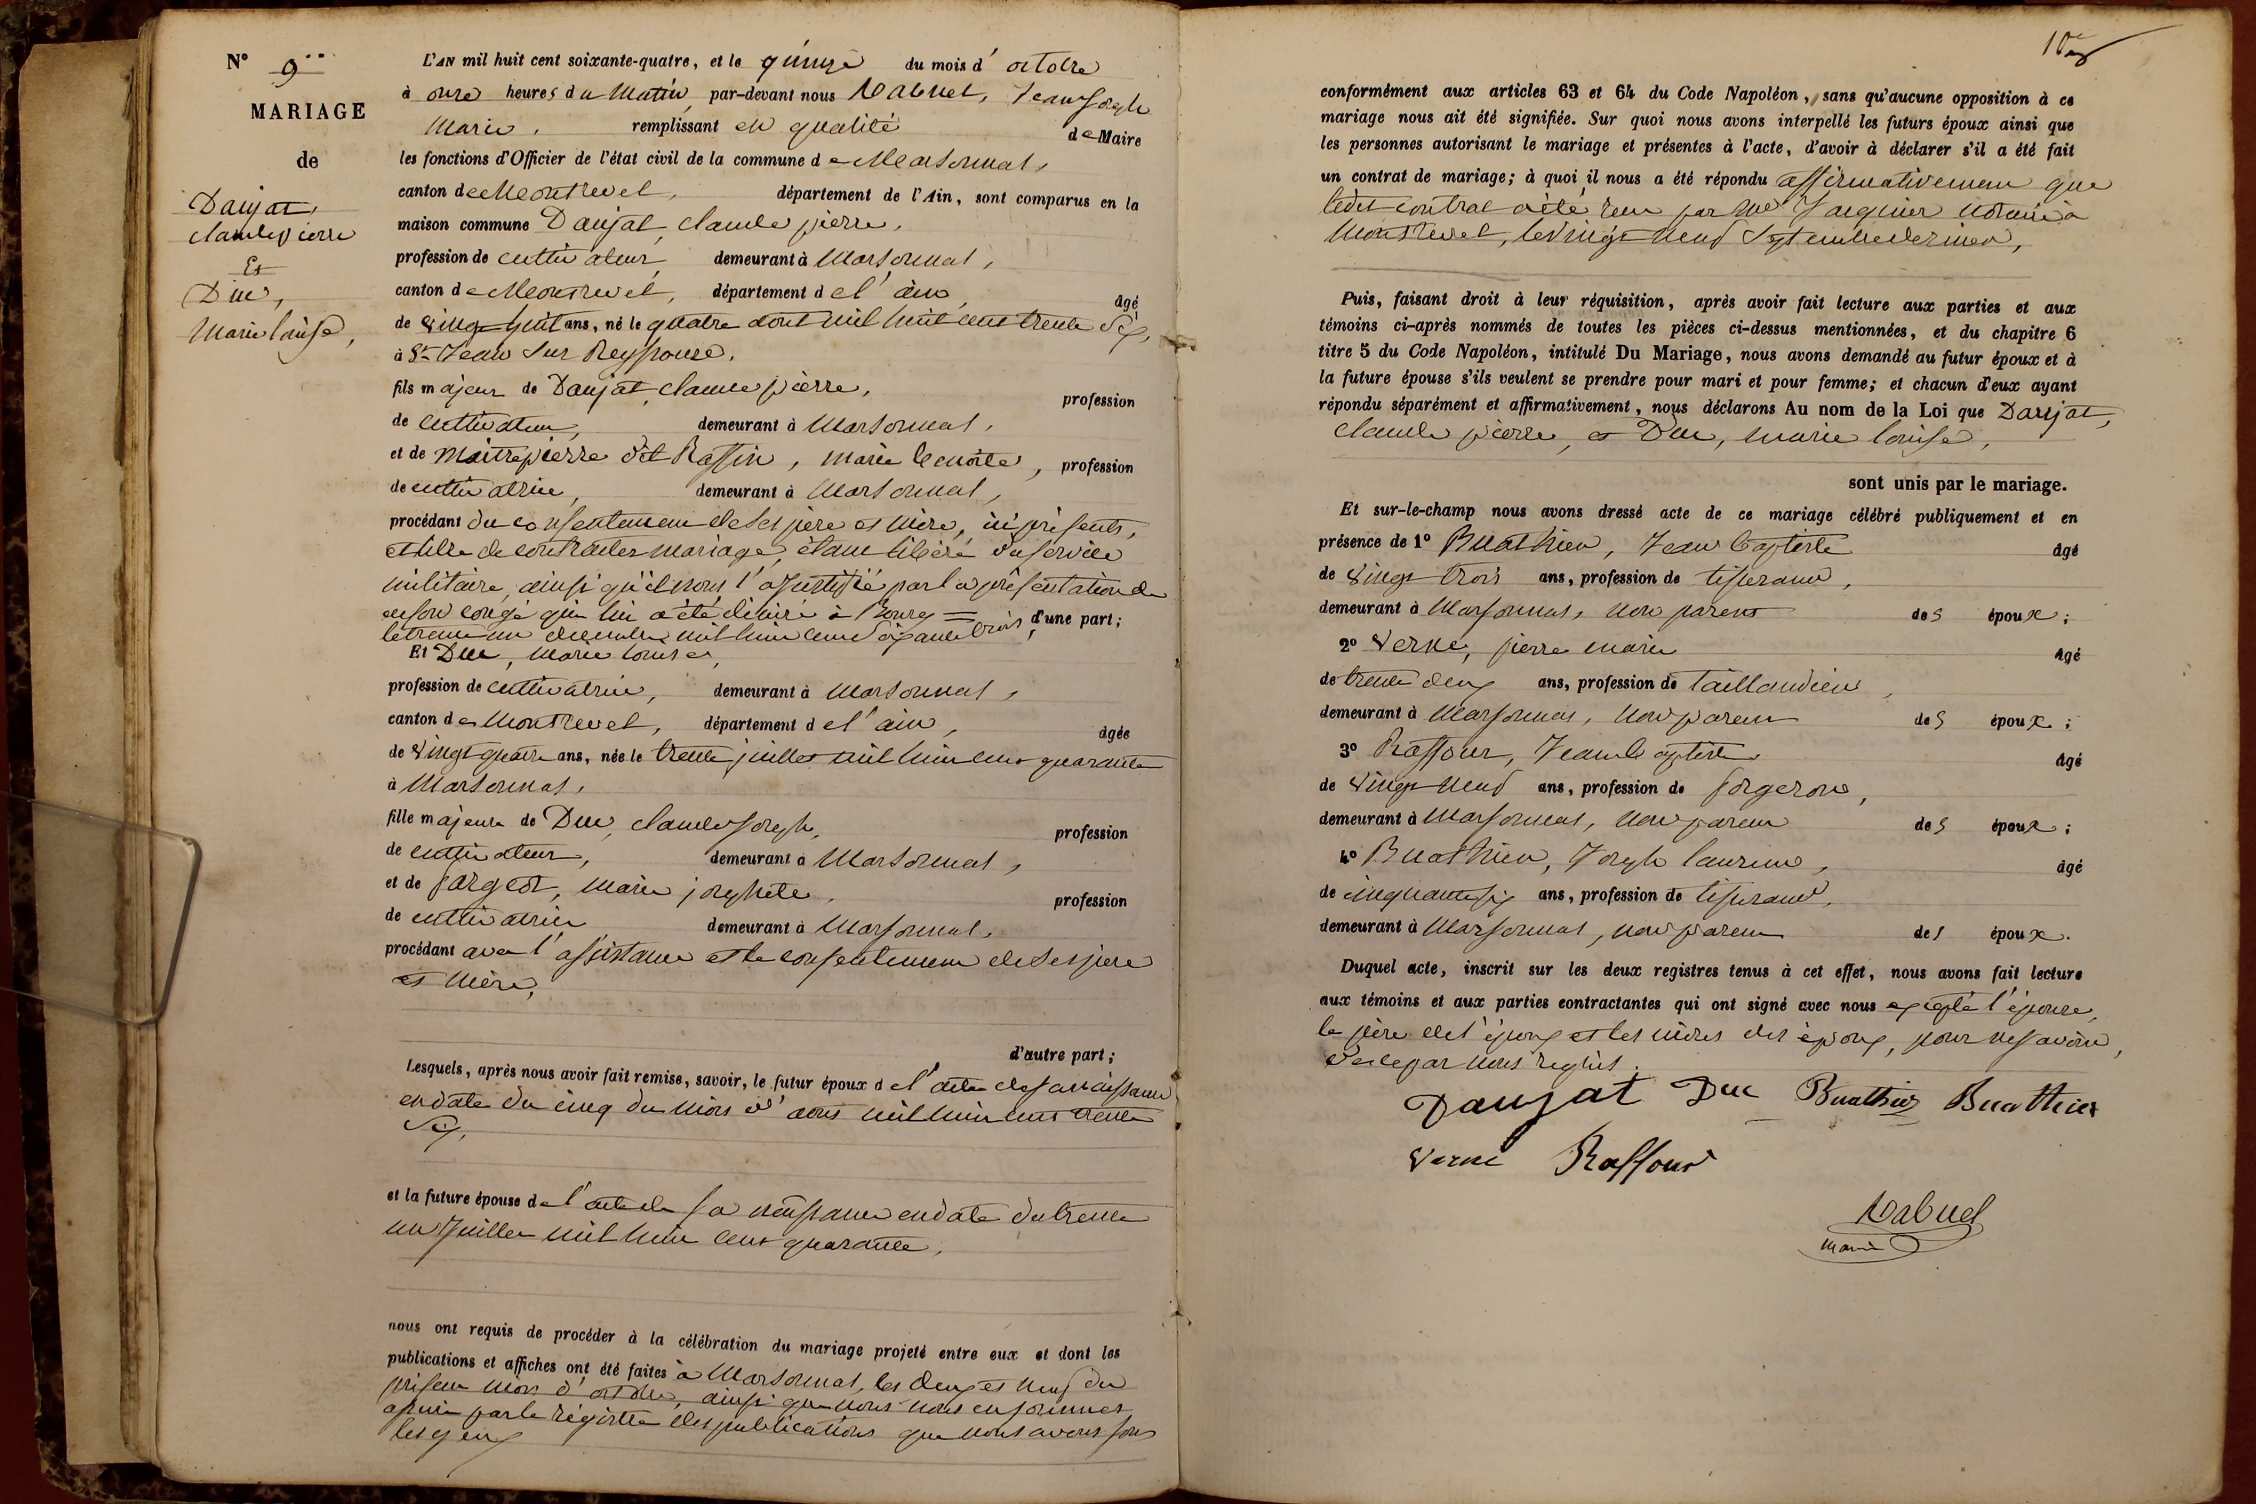 N° 9
MARIAGE
de
Daujat,
Claude pierre
Et
Duc,
Marie louise,
L'AN mil huit cent soixante-quatre, et le quinze du mois d'octobre
à onze heures du Matin, par-devant nous Rabuel, Jean joseph
Marie, remplissant en qualité de Maire
les fonctions d'Officier de l'état civil de la commune de Marsonnas,
canton de Montrevel, département de l'Ain, sont comparus en la
maison commune Daujat, Claude pierre,
profession de cultivateur, demeurant à Marsonnas,
canton de Montrevel, département de l'ain, âgé
de vingt huit ans, né le quatre aout mil huit cent trente Six,
à St Jean Sur Reyssouze,
fils majeur de Daujat, Claude pierre, profession
de cultivateur, demeurant à Marsonnas,
et de Maitrepierre dit Raffin, Marie benoite, profession
de cultivatrice, demeurant à Marsonnas,
procédant du consentement de Ses père et mère, ici présents,
et libre de contracter mariage, étant libéré du service
militaire, ainsi qu'il nous l'a justifié par la présentation de
son congé qui lui a été délivré à Bourg = d'une part;
le trente un décembre mil huit cent soixante trois,
Et Duc, Marie louise,
profession de cultivatrice, demeurant à Marsonnas,
canton de Montrevel, département de l'ain, âgée
de vingt quatre ans, née le trente juillet mil huit cent quarante
à Marsonnas,
fille majeure de Duc, Claude joseph, profession
de cultivateur, demeurant à Marsonnas,
et de fargeot, Marie josephete, profession
de cultivatrice demeurant à Marsonnas,
procédant avec l'assistance et le consentement de Ses père
et Mère,
d'autre part;
Lesquels, après nous avoir fait remise, savoir, le futur époux de l'acte de sa naissance
en date du cinq du mois d'aout mil huit cent trente
Six,
et la future épouse de l'acte de sa naissance en date du trente
un Juillet mil huit cent quarante,
nous ont requis de procéder à la célébration du mariage projeté entre eux et dont les
publications et affiches ont été faites à Marsonnas, les deux et neuf du
présent mois d'octobre, ainsi que nous nous en sommes
assuré par le régistre des publications que nous avons sous
les yeux
10
conformément aux articles 63 et 64 du Code Napoléon, sans qu'aucune opposition à ce
mariage nous ait été signifiée. Sur quoi nous avons interpellé les futurs époux ainsi que
les personnes autorisant le mariage et présentes à l'acte, d'avoir à déclarer s'il a été fait
un contrat de mariage; à quoi il nous a été répondu affirmativement que
ledit contrat a été reçu par Me Jacquier notaire à
Montrevel, le vingt neuf Septembre dernier,
Puis, faisant droit à leur réquisition, après avoir fait lecture aux parties et aux
témoins ci-après nommés de toutes les pièces ci-dessus mentionnées, et du chapitre 6
titre 5 du Code Napoléon, intitulé Du Mariage, nous avons demandé au futur époux et à
la future épouse s'ils veulent se prendre pour mari et pour femme; et chacun d'eux ayant
répondu séparément et affirmativement, nous déclarons Au nom de la Loi que Daujat,
Claude pierre, et Duc, Marie louise,
sont unis par le mariage.
Et sur-le-champ nous avons dressé acte de ce mariage célébré publiquement et en
présence de 1° Buathier, Jean baptiste âgé
de vingt trois ans, profession de tisserand,
demeurant à Marsonnas, non parent des époux;
2° Verne, pierre marie âgé
de trente deux ans, profession de taillandier,
demeurant à Marsonnas, non parent des époux;
3° Raffour, Jean baptiste âgé
de vingt neuf ans, profession de forgeron,
demeurant à Marsonnas, non parent des époux;
4° Buathier, Joseph laurent, âgé
de cinquante six ans, profession de tisserand,
demeurant à Marsonnas, non parent des époux.
Duquel acte, inscrit sur les deux registres tenus à cet effet, nous avons fait lecture
aux témoins et aux parties contractantes qui ont signé avec nous excepté l'épouse,
le père de l'époux et les mères des époux, pour ne savoir,
de ce par nous requis.
Daujat Duc Buathier Buathier
Verne Raffour
Rabuel
maire